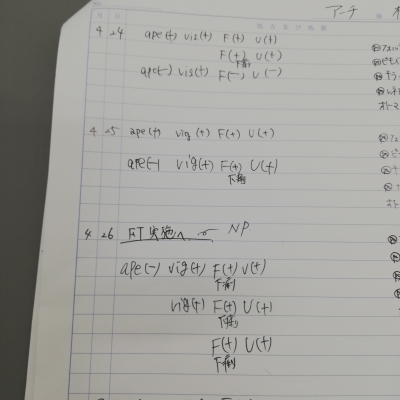 アーチ
4 24 ape(+) vis(+) F(+) U(+)
F(+) U(+)
下痢
ape(-) vis(+) F(-) U(-)
4 25 ape(+) vig(+) F(+) U(+)
ape(-) vig(+) F(+) U(+)
下痢
4 26 ET実施へ NP
ape(-) vig(+) F(+) U(+)
下痢
vig(+) F(+) U(+)
下痢
F(+) U(+)
下痢